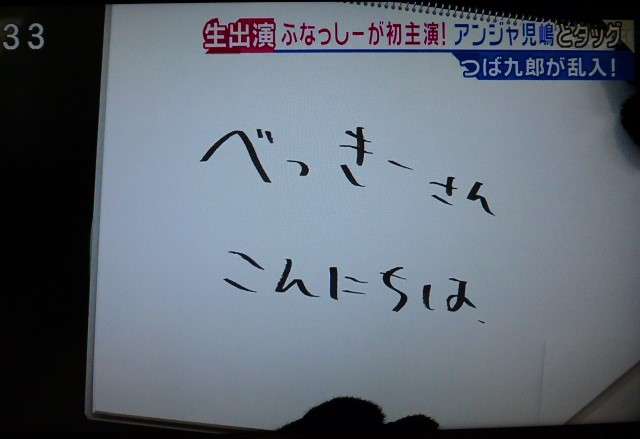 33
生出演 ふなっしーが初主演！ アンジャ児嶋とタッグ
つば九郎が乱入！
べっきーさん
こんにちは、